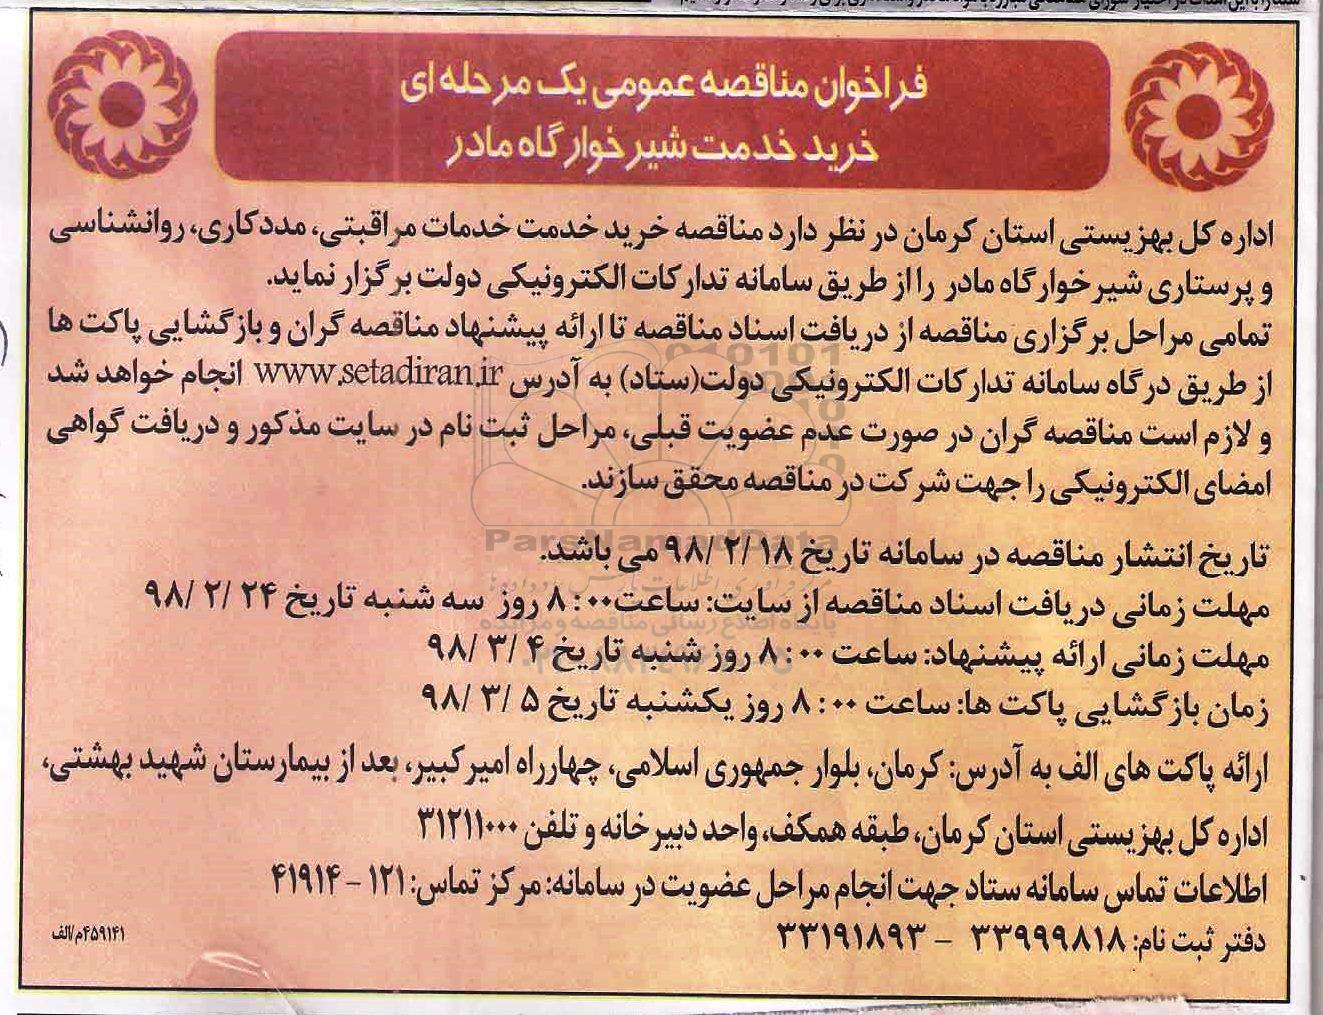 فراخوان مناقصه عمومی یک مرحله ای
خرید خدمت شیرخوارگاه مادر
اداره کل بهزیستی استان کرمان در نظر دارد مناقصه خرید خدمت خدمات مراقبتی، مددکاری، روانشناسی
و پرستاری شیرخوارگاه مادر را از طریق سامانه تدارکات الکترونیکی دولت برگزار نماید.
تمامی مراحل برگزاری مناقصه از دریافت اسناد مناقصه تا ارائه پیشنهاد مناقصه گران و بازگشایی پاکت ها
از طریق درگاه سامانه تدارکات الکترونیکی دولت(ستاد) به آدرس www.setadiran.ir انجام خواهد شد
و لازم است مناقصه گران در صورت عدم عضویت قبلی، مراحل ثبت نام در سایت مذکور و دریافت گواهی
امضای الکترونیکی را جهت شرکت در مناقصه محقق سازند.
ParsNamadData
تاریخ انتشار مناقصه در سامانه تاریخ ۹۸/۲/۱۸ می باشد.
مهلت زمانی دریافت اسناد مناقصه از سایت: ساعت ۸:۰۰ روز سه شنبه تاریخ ۹۸/۲/۲۴
پایگاه اطلاع رسانی مناقصه و مزایده
مهلت زمانی ارائه پیشنهاد: ساعت ۸:۰۰ روز شنبه تاریخ ۹۸/۳/۴
زمان بازگشایی پاکت ها: ساعت ۸:۰۰ روز یکشنبه تاریخ ۹۸/۳/۵
ارائه پاکت های الف به آدرس: کرمان، بلوار جمهوری اسلامی، چهارراه امیرکبیر، بعد از بیمارستان شهید بهشتی،
اداره کل بهزیستی استان کرمان، طبقه همکف، واحد دبیرخانه و تلفن ۳۱۲۱۱۰۰۰
اطلاعات تماس سامانه ستاد جهت انجام مراحل عضویت در سامانه: مرکز تماس: ۱۲۱ - ۴۱۹۱۴
دفتر ثبت نام: ۳۳۹۹۹۸۱۸ - ۳۳۱۹۱۸۹۳
۴۵۹۱۴۱/م/الف